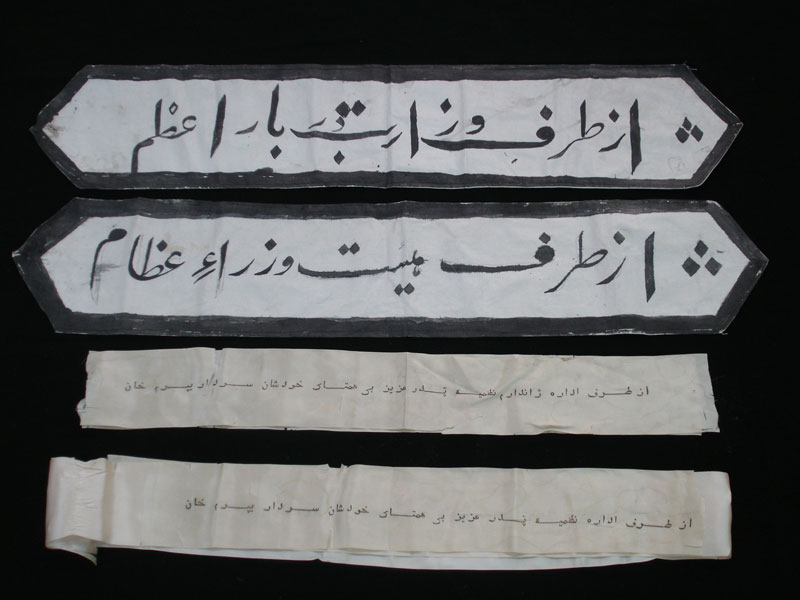 از طرف وزارت دربار اعظم
از طرف هیئت وزراءِ عظام
از طرف اداره ژاندارم نظمیه پدر عزیز بی همتای خودشان سردار یپرم خان
از طرف اداره نظمیه پدر عزیز بی همتای خودشان سردار یپرم خان